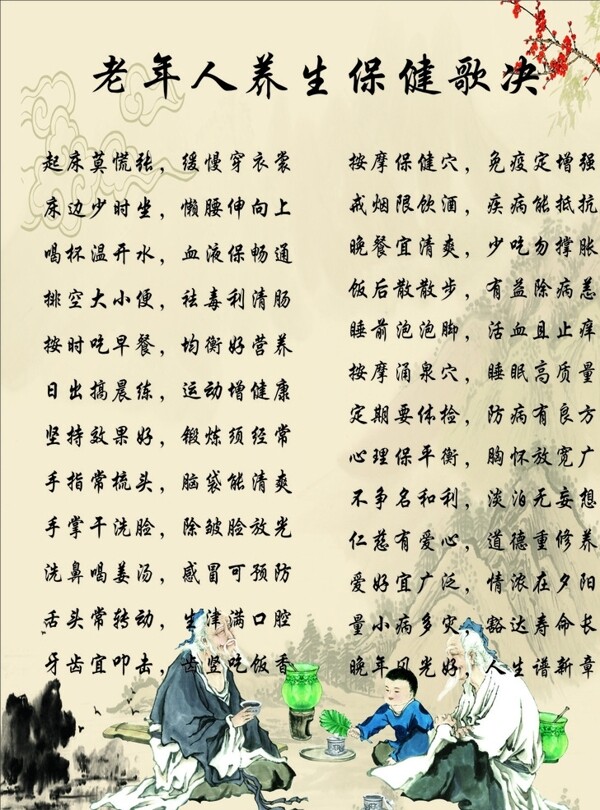 老年人养生保健歌决
起床莫慌张，缓慢穿衣裳
床边少时坐，懒腰伸向上
喝杯温开水，血液保畅通
排空大小便，祛毒利清肠
按时吃早餐，均衡好营养
日出搞晨练，运动增健康
坚持效果好，锻炼须经常
手指常梳头，脑袋能清爽
手掌干洗脸，除皱脸放光
洗鼻喝姜汤，感冒可预防
舌头常转动，生津满口腔
牙齿宜叩击，齿坚吃饭香
按摩保健穴，免疫定增强
戒烟限饮酒，疾病能抵抗
晚餐宜清爽，少吃勿撑胀
饭后散散步，有益除病恙
睡前泡泡脚，活血且止痒
按摩涌泉穴，睡眠高质量
定期要体检，防病有良方
心理保平衡，胸怀放宽广
不争名和利，淡泊无妄想
仁慈有爱心，道德重修养
爱好宜广泛，情浓在夕阳
量小病多灾，豁达寿命长
晚年风光好，人生谱新章